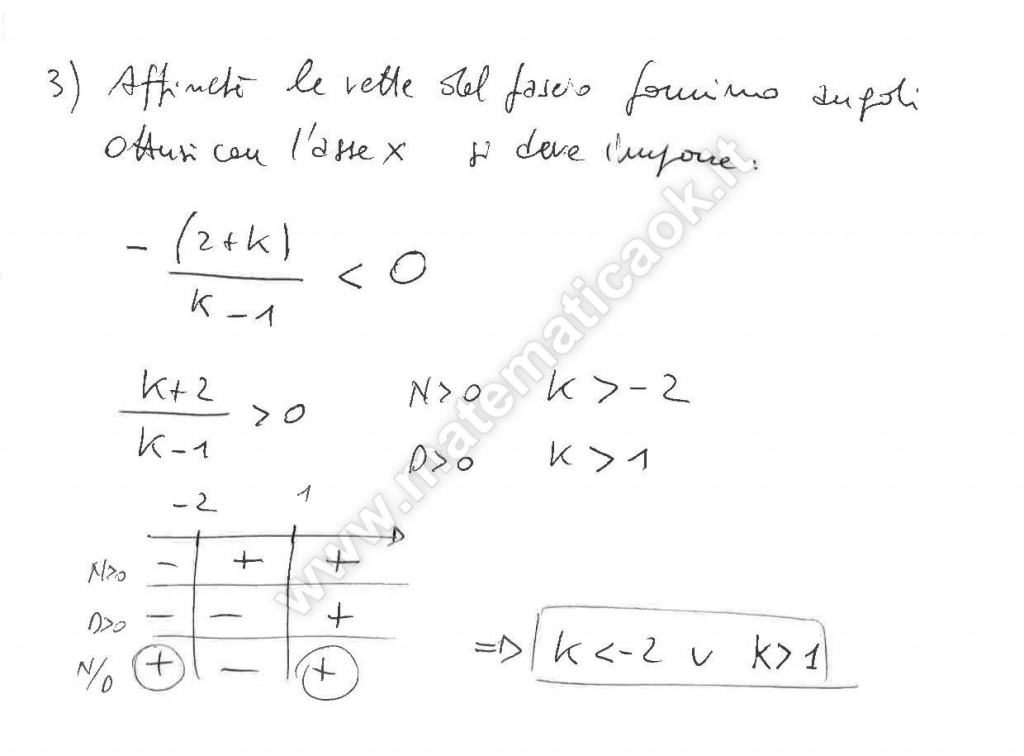 3) Affinché le rette del fascio formino angoli
ottusi con l'asse x si deve imporre:
- (2+k) / k-1 < 0
k+2 / k-1 > 0 N>0 k>-2
D>0 k>1
-2 1
N>0 - + +
D>0 - - +
N/D + - +
=> k<-2 ∨ k>1
www.matematicaok.it